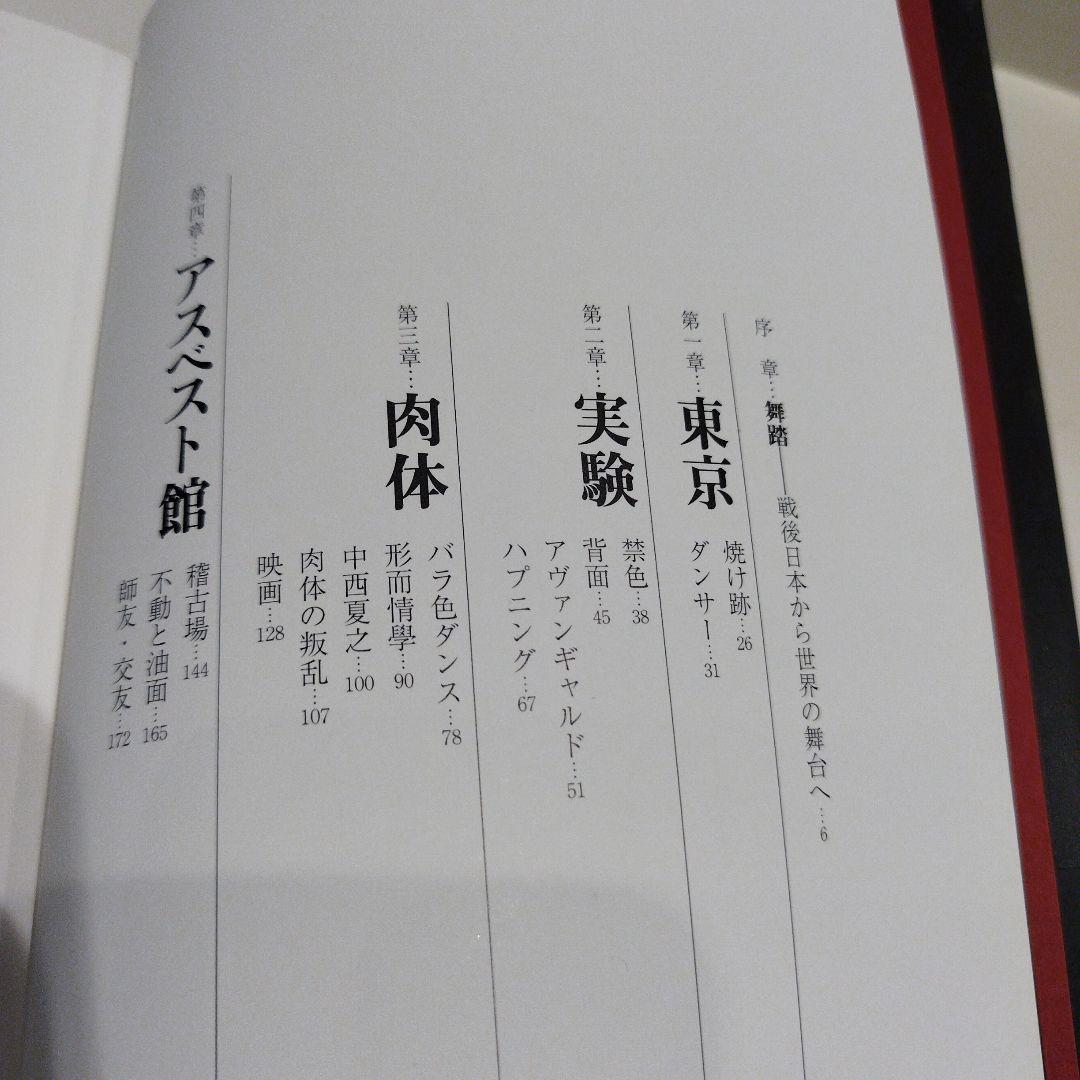 序章…舞踏――戦後日本から世界の舞台へ…6
第一章…東京
焼け跡…26
ダンサー…31
第二章…実験
禁色…38
背面…45
アヴァンギャルド…51
ハプニング…67
第三章…肉体
バラ色ダンス…78
形而情學…90
中西夏之…100
肉体の叛乱…107
映画…128
第四章…アスベスト館
稽古場…144
不動と油面…165
師友・交友…172